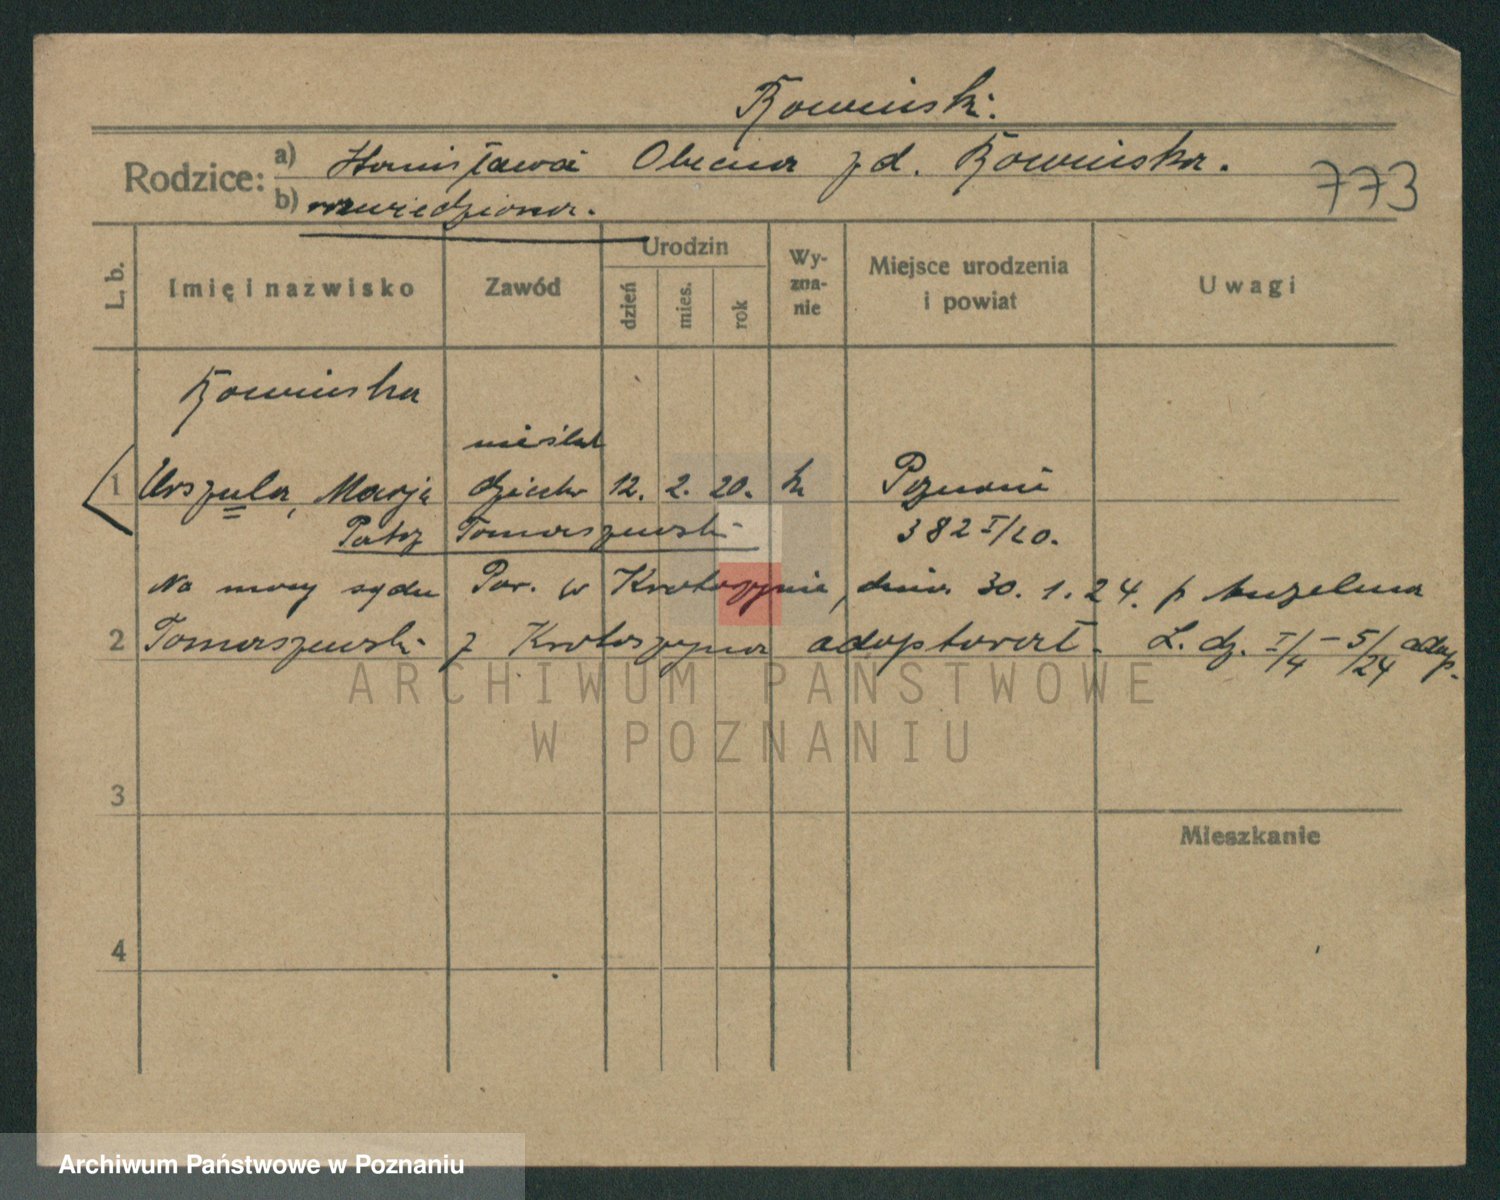 Rowiński.
Rodzice: a) Stanisława Obecna z d. Rowińska.
b) rozwiedziona.
773
L. b. Imię i nazwisko Zawód Urodzin dzień mies. rok Wy-zna-nie Miejsce urodzenia i powiat Uwagi
Rowińska
nieślub
1 Urszula, Marja dziecko 12. 2. 20. k Poznań
Patrz Tomaszewski 382 I/20.
Na mocy sądu Pow. w Krotoszynie, dnia 30. 1. 24. p Anzelma
2 Tomaszewski z Krotoszyna adoptował. L. dz. I/4 - 5/24 adop.
3
Mieszkanie
4
ARCHIWUM PAŃSTWOWE
W POZNANIU
Archiwum Państwowe w Poznaniu